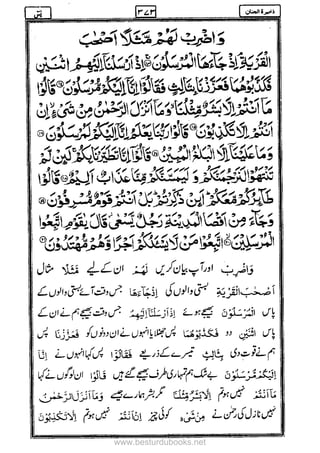 ذخيرة الجنان
٣٧٣
يٰسٓ
وَاضْرِبْ لَهُمْ مَّثَلًا اَصْحٰبَ
الْقَرْيَةِ ۘ اِذْ جَآءَهَا الْمُرْسَلُوْنَ ۚ اِذْ اَرْسَلْنَآ اِلَيْهِمُ اثْنَيْنِ
فَكَذَّبُوْهُمَا فَعَزَّزْنَا بِثَالِثٍ فَقَالُوْٓا اِنَّآ اِلَيْكُمْ مُّرْسَلُوْنَ قَالُوْا
مَآ اَنْتُمْ اِلَّا بَشَرٌ مِّثْلُنَا وَمَآ اَنْزَلَ الرَّحْمٰنُ مِنْ شَيْءٍ اِنْ
اَنْتُمْ اِلَّا تَكْذِبُوْنَ قَالُوْا رَبُّنَا يَعْلَمُ اِنَّآ اِلَيْكُمْ لَمُرْسَلُوْنَ
وَمَا عَلَيْنَآ اِلَّا الْبَلٰغُ الْمُبِيْنُ قَالُوْٓا اِنَّا تَطَيَّرْنَا بِكُمْ لَئِنْ لَّمْ
تَنْتَهُوْا لَنَرْجُمَنَّكُمْ وَلَيَمَسَّنَّكُمْ مِّنَّا عَذَابٌ اَلِيْمٌ قَالُوْا
طَآئِرُكُمْ مَّعَكُمْ اَئِنْ ذُكِّرْتُمْ بَلْ اَنْتُمْ قَوْمٌ مُّسْرِفُوْنَ
وَجَآءَ مِنْ اَقْصَا الْمَدِيْنَةِ رَجُلٌ يَّسْعٰى قَالَ يٰقَوْمِ اتَّبِعُوا
الْمُرْسَلِيْنَ اتَّبِعُوْا مَنْ لَّا يَسْئَلُكُمْ اَجْرًا وَّهُمْ مُّهْتَدُوْنَ
وَاضْرِبْ اور آپ بیان کریں لَهُمْ ان کے لیے مَّثَلًا مثال
اَصْحٰبَ الْقَرْيَةِ بستی والوں کی اِذْ جَآءَهَا جس وقت آئے بستی والوں کے
پاس الْمُرْسَلُوْنَ بھیجے ہوئے اِذْ اَرْسَلْنَآ اِلَيْهِمُ جس وقت بھیجے ہم نے ان کے
پاس اثْنَيْنِ دو فَكَذَّبُوْهُمَا پس جھٹلایا انہوں نے ان دونوں کو فَعَزَّزْنَا پس
ہم نے قوت دی بِثَالِثٍ تیسرے کے ذریعے فَقَالُوْٓا پس کہا انہوں نے اِنَّآ
اِلَيْكُمْ مُّرْسَلُوْنَ بے شک ہم تمہاری طرف بھیجے گئے ہیں قَالُوْا ان لوگوں نے کہا
مَآ اَنْتُمْ نہیں ہو تم اِلَّا بَشَرٌ مِّثْلُنَا مگر بشر ہمارے جیسے وَمَآ اَنْزَلَ الرَّحْمٰنُ
نہیں نازل کی رحمٰن نے مِنْ شَيْءٍ کوئی چیز اِنْ اَنْتُمْ نہیں ہو تم اِلَّا تَكْذِبُوْنَ
www.besturdubooks.net